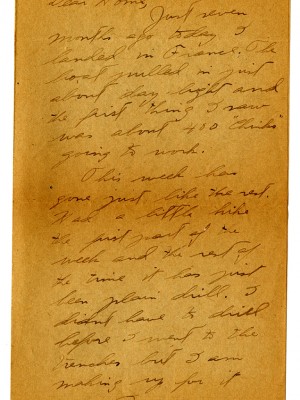 Dear
Just seven
months ago today I
landed in France. The
boat pulled in just
about day light and
the first thing I saw
was about 400 "Chinks"
going to work.
This week has
gone just like the rest.
Had a little hike
the first part of the
week and the rest of
the time it has just
been plain drill. I
didn't have to drill
before I went to the
trenches but I am
making up for it